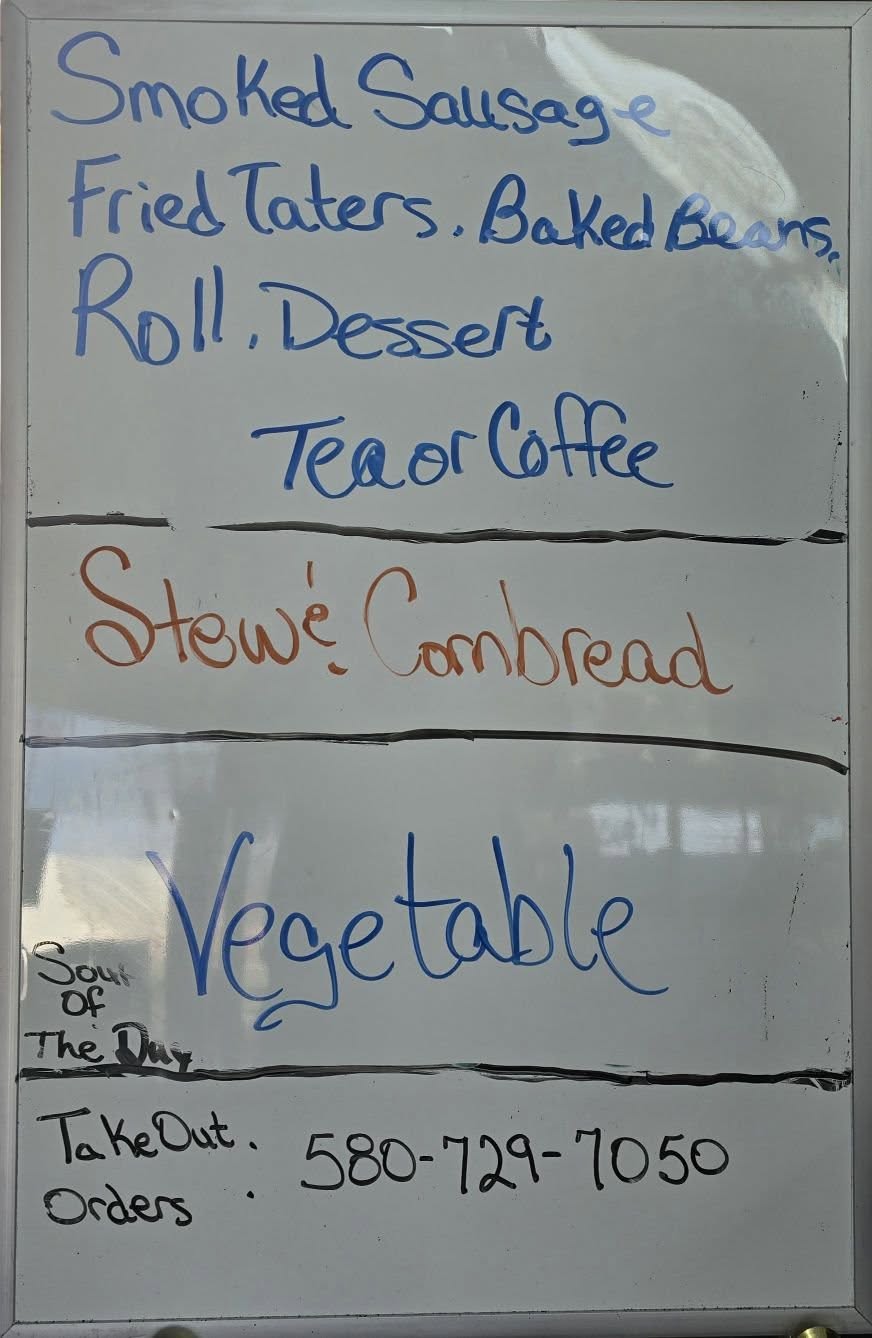 Smoked Sausage
Fried Taters, Baked Beans,
Roll, Dessert
Tea or Coffee
Stew & Cornbread
Vegetable
Soup
Of
The Day
Take Out
Orders : 580-729-7050